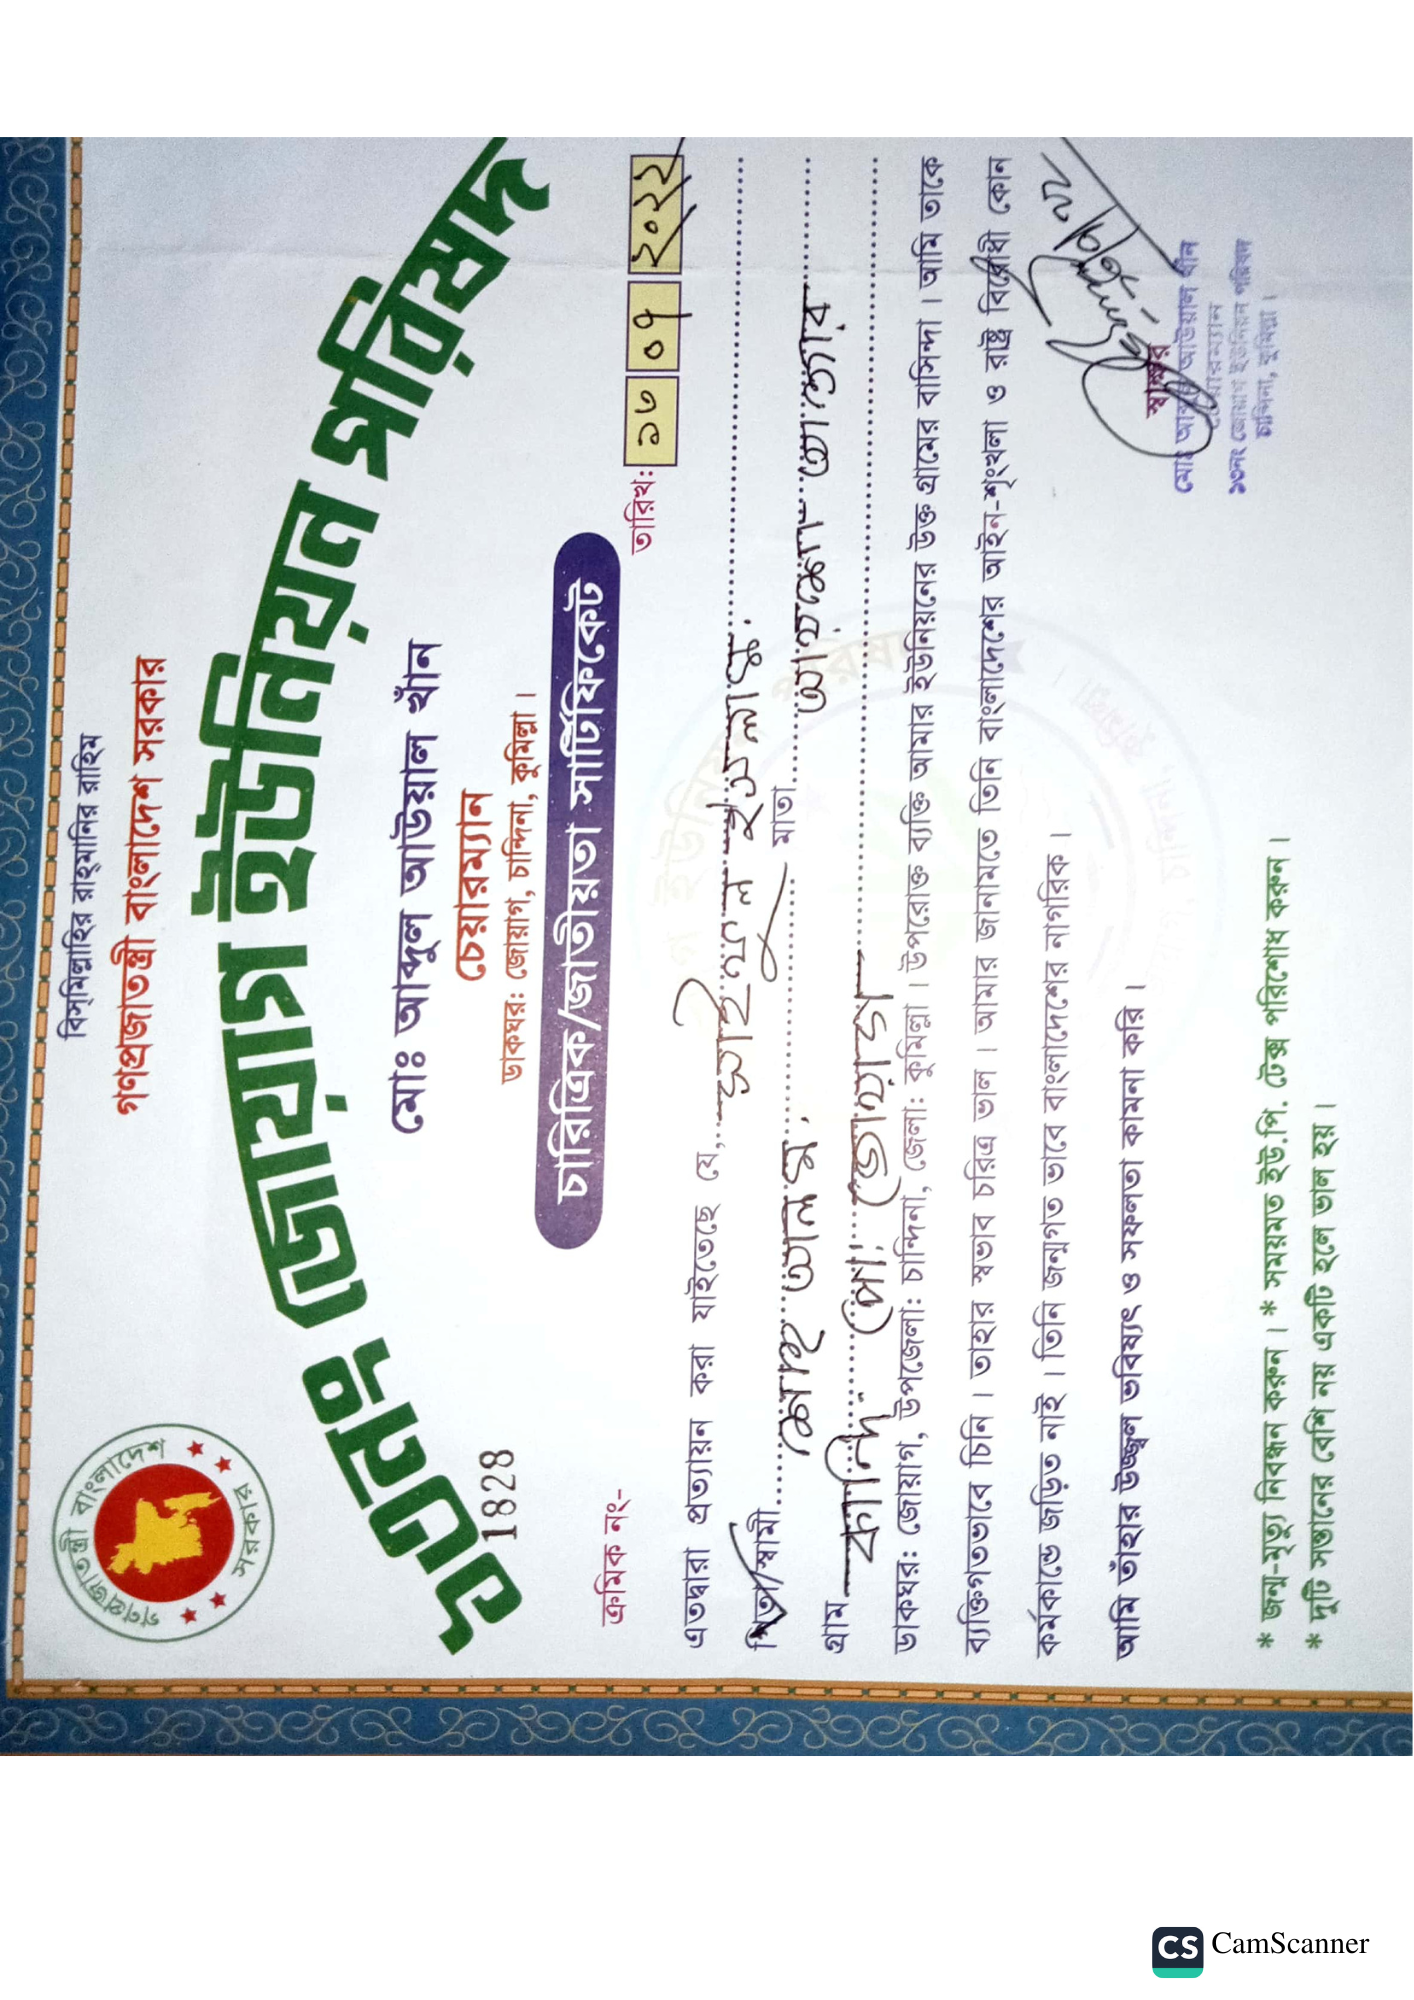 বিস্‌মিল্লাহির রাহ্‌মানির রাহিম
গণপ্রজাতন্ত্রী বাংলাদেশ সরকার
গণপ্রজাতন্ত্রী বাংলাদেশ
সরকার
১৩নং জোয়াগ ইউনিয়ন পরিষদ
মোঃ আব্দুল আউয়াল খাঁন
চেয়ারম্যান
ডাকঘর: জোয়াগ, চান্দিনা, কুমিল্লা।
1828
চারিত্রিক/জাতীয়তা সার্টিফিকেট
ক্রমিক নং-
তারিখ: ১৩ ০৭ ২০২২
এতদ্বারা প্রত্যায়ন করা যাইতেছে যে, সাইফুল ইসলাম
পিতা/স্বামী শাহ আলম মাতা আয়শা আক্তার
গ্রাম পো: জোয়াগ
ডাকঘর: জোয়াগ, উপজেলা: চান্দিনা, জেলা: কুমিল্লা। উপরোক্ত ব্যক্তি আমার ইউনিয়নের উক্ত গ্রামের বাসিন্দা। আমি তাকে
ব্যক্তিগতভাবে চিনি। তাহার স্বভাব চরিত্র ভাল। আমার জানামতে তিনি বাংলাদেশের আইন-শৃংখলা ও রাষ্ট্র বিরোধী কোন
কর্মকান্ডে জড়িত নাই। তিনি জন্মগত ভাবে বাংলাদেশের নাগরিক।
আমি তাঁহার উজ্জ্বল ভবিষ্যৎ ও সফলতা কামনা করি।
স্বাক্ষর
মোঃ আব্দুল আউয়াল খাঁন
চেয়ারম্যান
১৩নং জোয়াগ ইউনিয়ন পরিষদ
চান্দিনা, কুমিল্লা।
* জন্ম-মৃত্যু নিবন্ধন করুন। * সময়মত ইউ.পি. টেক্স পরিশোধ করুন।
* দুটি সন্তানের বেশি নয় একটি হলে ভাল হয়।
CS CamScanner